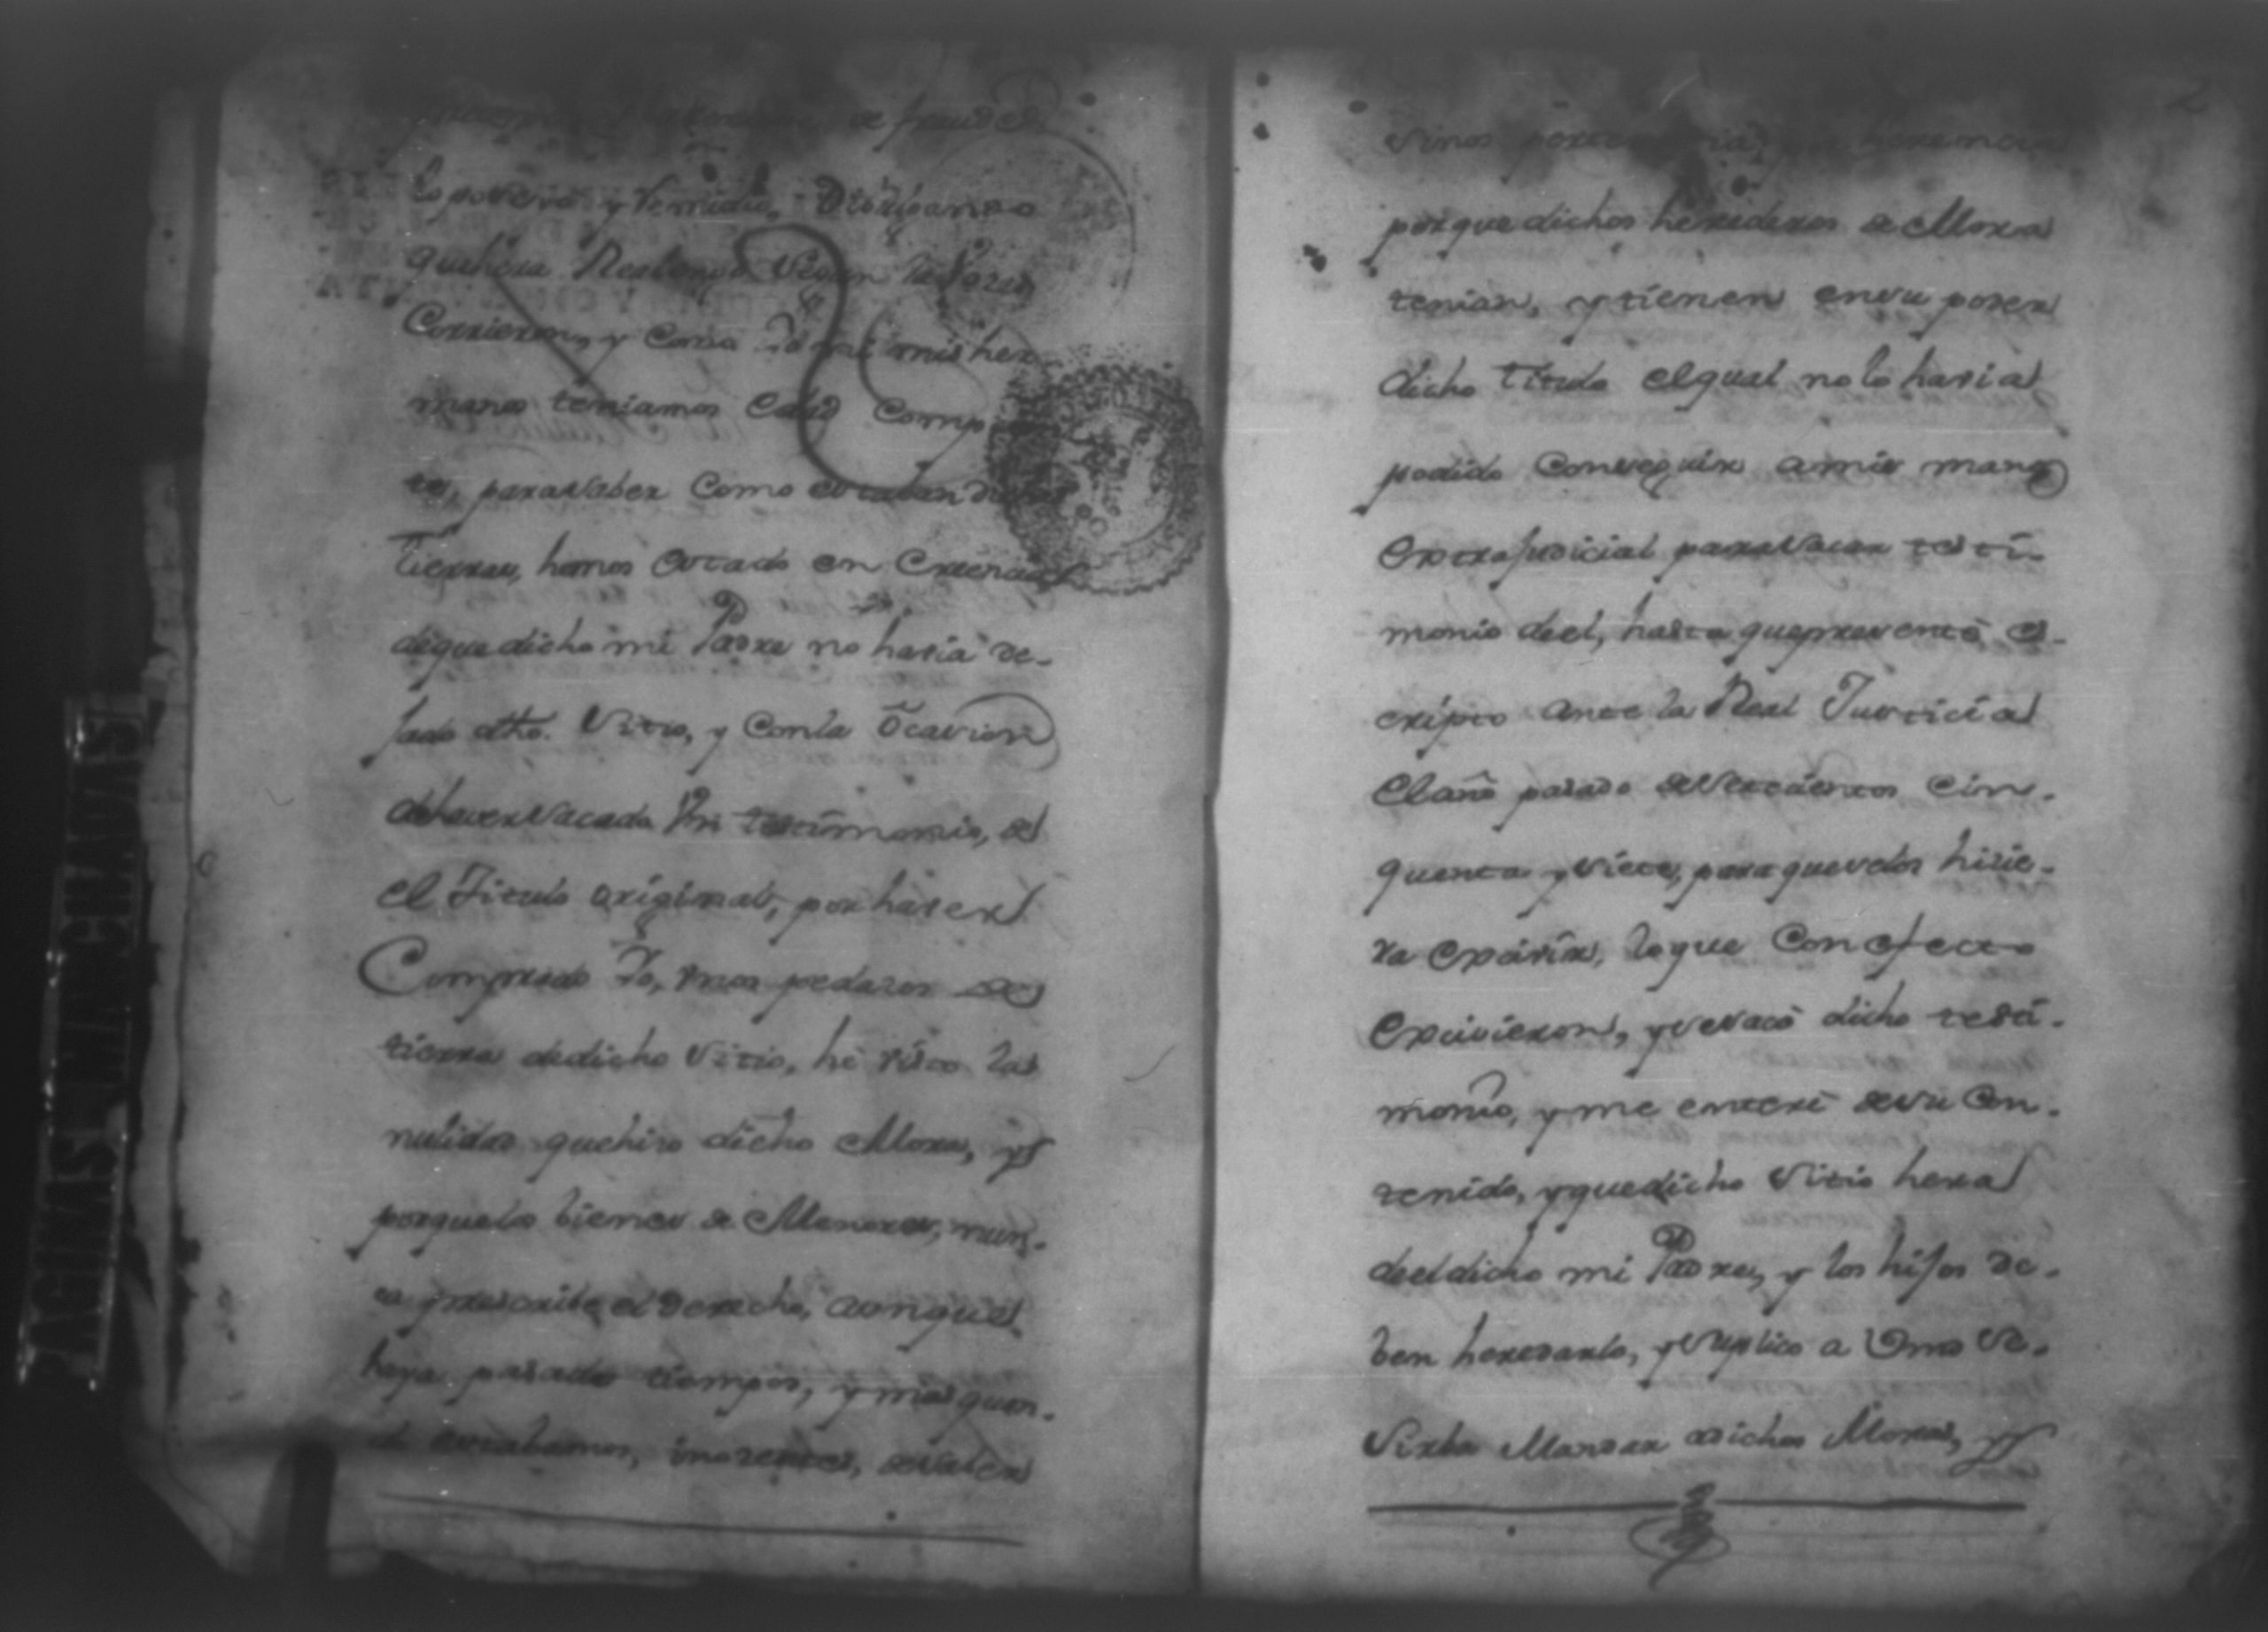 de fraude
lo poseió y Vendió,
que hera Realengo Según las Vozes
Corrieron, y Como Yo ni mis her-
manos teniamos Edad Compe
te, para saber Como estaban dichas
Tierras, hemos estado en Creencia
de que dicho mi Padre no havia de-
jado dho. Sitio, y Con la Ocasion
de haver Sacado Un testimonio, de
el Titulo original, por haver
Comprado Yo, unos pedazos de
tierra de dicho Sitio, hé visto la
nulidad que hizo dicho Mora, y
porque los bienes de Menores, nun-
ca prescribe el derecho, aunque
haya pasado tiempos, y mas quan-
do estabamos, inozentes, de saber
sinos herencia
porque dichos herederos de Mora
tenian, y tienen en su poder
dicho Titulo el qual no lo havia
podido Conseguir a mis manos
Extrajudicial para Sacar testi-
monio de el, hasta que presenté es-
cripto ante la Real Justicia
El año pasado de setecientos Cin-
quenta y siete, para que se los hisie-
ra Exivir, lo que Con efecto
Exivieron, y se sacó dicho testi-
monio, y me enteré de su Con-
tenido, y que dicho Sitio hera
de el dicho mi Padre, y los hijos de-
ben heredarlo, y Suplico a Vmd Se
Sirba Mandar a dichos Moras, y
2
PAGINAS MANCHADAS